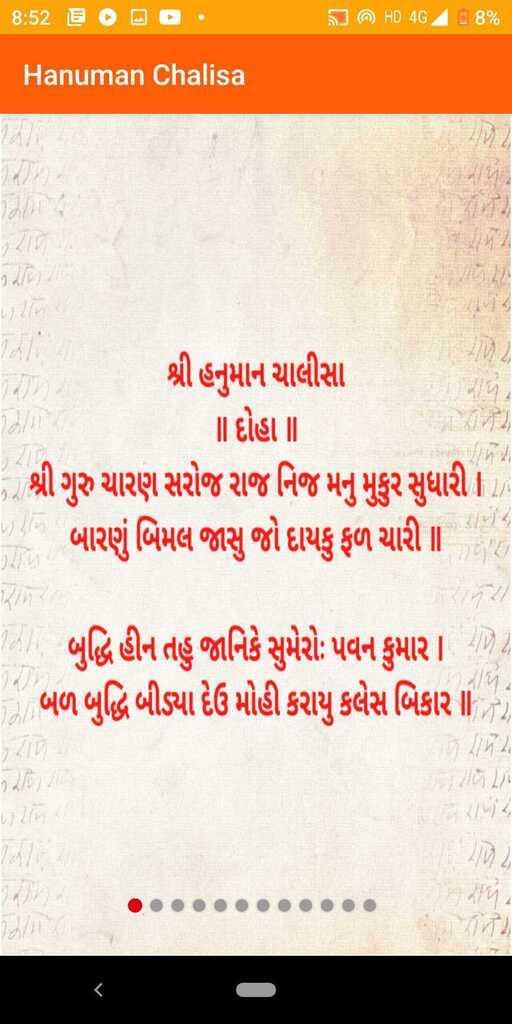 8:52 HD 4G 8%
Hanuman Chalisa
શ્રી હનુમાન ચાલીસા
॥ દોહા ॥
શ્રી ગુરુ ચારણ સરોજ રાજ નિજ મનુ મુકુર સુધારી ।
બારણું બિમલ જાસુ જો દાયકુ ફળ ચારી ॥
બુદ્ધિ હીન તહુ જાનિકે સુમેરોઃ પવન કુમાર ।
બળ બુદ્ધિ બીડ્યા દેઉ મોહી કરાયુ કલેસ બિકાર ॥